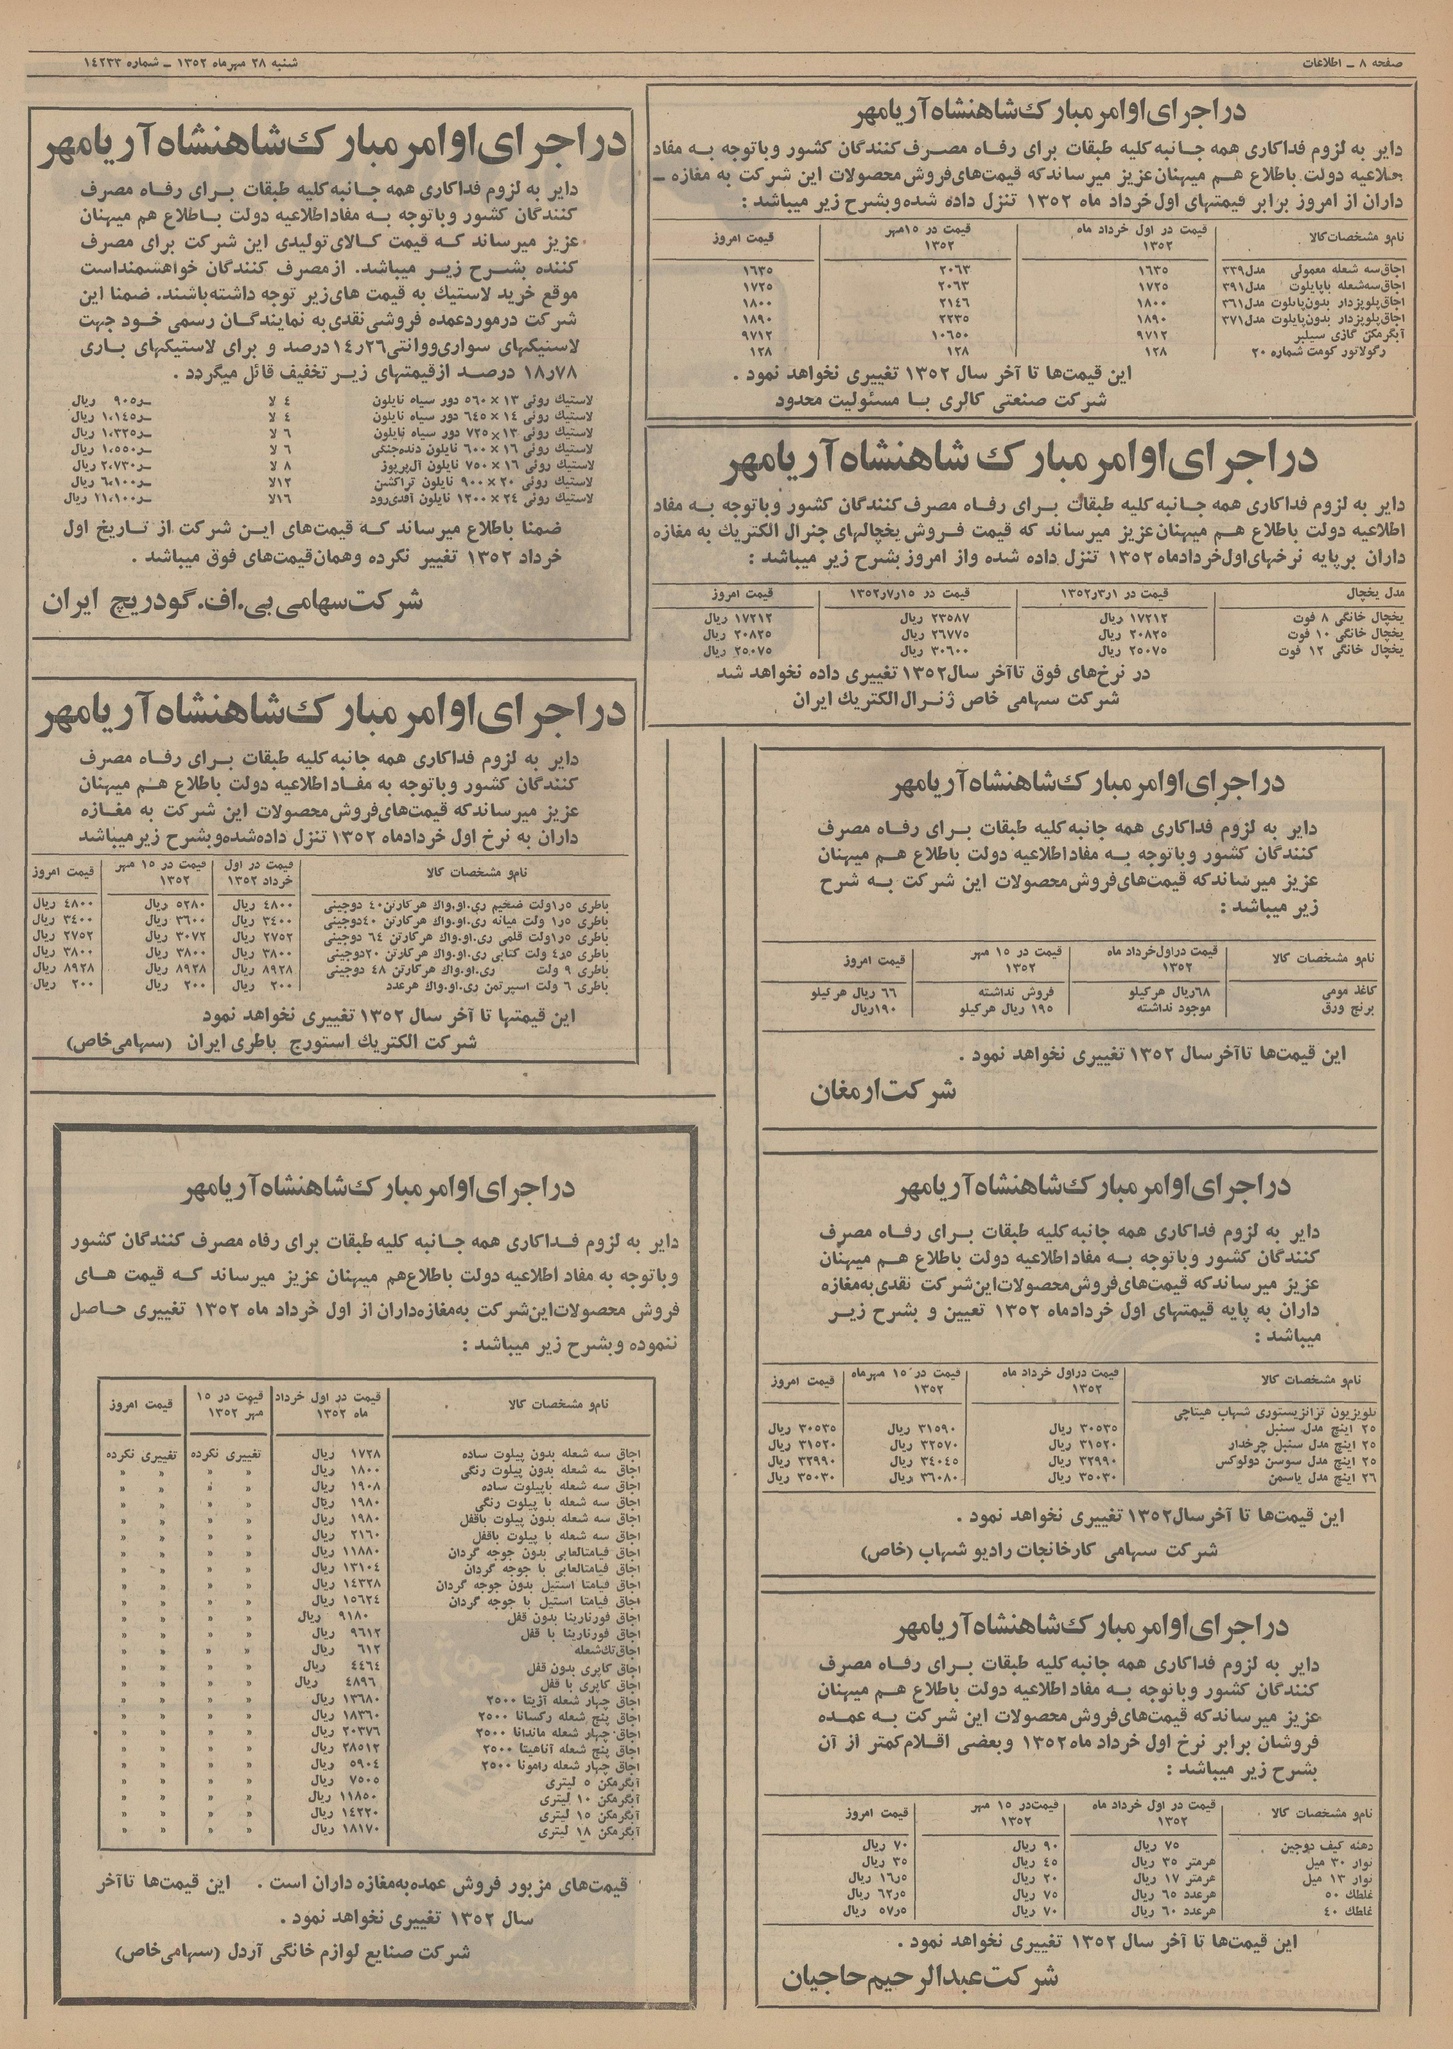 صفحه ۸ ـ اطلاعات
شنبه ۲۸ مهرماه ۱۳۵۲ ـ شماره ۱۴۲۳۳
در اجرای اوامر مبارك شاهنشاه آریامهر
دایر به لزوم فداکاری همه جانبه کلیه طبقات برای رفاه مصرف کنندگان کشور و باتوجه به مفاد
اطلاعیه دولت باطلاع هم میهنان عزیز میرساند که قیمت‌های فروش محصولات این شرکت به مغازه ـ
داران از امروز برابر قیمتهای اول خرداد ماه ۱۳۵۲ تنزل داده شده و بشرح زیر میباشد :
نام و مشخصات کالا قیمت در اول خرداد ماه ۱۳۵۲ قیمت در ۱۵ مهر ۱۳۵۲ قیمت امروز
اجاق سه شعله معمولی مدل ۳۳۹ ۱۶۳۵ ۲۰۶۳ ۱۶۳۵
اجاق سه شعله باپایلوت مدل ۳۹۱ ۱۷۲۵ ۲۰۶۳ ۱۷۲۵
اجاق پلوپزدار بدون پایلوت مدل ۳۶۱ ۱۸۰۰ ۲۱۴۶ ۱۸۰۰
اجاق پلوپزدار بدون پایلوت مدل ۳۷۱ ۱۸۹۰ ۲۲۳۵ ۱۸۹۰
آبگرمکن گازی سیلبر ۹۷۱۲ ۱۰۶۵۰ ۹۷۱۲
رگولاتور کومت شماره ۲۰ ۱۲۸ ۱۲۸ ۱۲۸
این قیمت‌ها تا آخر سال ۱۳۵۲ تغییری نخواهد نمود .
شرکت صنعتی کالری با مسئولیت محدود
در اجرای اوامر مبارك شاهنشاه آریامهر
دایر به لزوم فداکاری همه جانبه کلیه طبقات برای رفاه مصرف کنندگان کشور و باتوجه به مفاد
اطلاعیه دولت باطلاع هم میهنان عزیز میرساند که قیمت فروش یخچالهای جنرال الکتریك به مغازه
داران برپایه نرخهای اول خردادماه ۱۳۵۲ تنزل داده شده و از امروز بشرح زیر میباشد :
مدل یخچال قیمت در ۱ر۳ر۱۳۵۲ قیمت در ۱۵ر۷ر۱۳۵۲ قیمت امروز
یخچال خانگی ۸ فوت ۱۷۲۱۲ ریال ۲۳۵۸۷ ریال ۱۷۲۱۲ ریال
یخچال خانگی ۱۰ فوت ۲۰۸۲۵ ریال ۲۶۷۷۵ ریال ۲۰۸۲۵ ریال
یخچال خانگی ۱۲ فوت ۲۵۰۷۵ ریال ۳۰۶۰۰ ریال ۲۵۰۷۵ ریال
در نرخ‌های فوق تا آخر سال ۱۳۵۲ تغییری داده نخواهد شد
شرکت سهامی خاص ژنرال الکتریك ایران
در اجرای اوامر مبارك شاهنشاه آریامهر
دایر به لزوم فداکاری همه جانبه کلیه طبقات برای رفاه مصرف
کنندگان کشور و باتوجه به مفاد اطلاعیه دولت باطلاع هم میهنان
عزیز میرساند که قیمت‌های فروش محصولات این شرکت به شرح
زیر میباشد :
نام و مشخصات کالا قیمت در اول خرداد ماه ۱۳۵۲ قیمت در ۱۵ مهر ۱۳۵۲ قیمت امروز
کاغذ مومی ۶۸ ریال هر کیلو فروش نداشته ۶۶ ریال هر کیلو
برنج ورق موجود نداشته ۱۹۵ ریال هر کیلو ۱۹۰ ریال
این قیمت‌ها تا آخر سال ۱۳۵۲ تغییری نخواهد نمود .
شرکت ارمغان
در اجرای اوامر مبارك شاهنشاه آریامهر
دایر به لزوم فداکاری همه جانبه کلیه طبقات برای رفاه مصرف
کنندگان کشور و باتوجه به مفاد اطلاعیه دولت باطلاع هم میهنان
عزیز میرساند که قیمت‌های فروش محصولات این شرکت نقدی به مغازه
داران به پایه قیمتهای اول خردادماه ۱۳۵۲ تعیین و بشرح زیر
میباشد :
نام و مشخصات کالا قیمت در اول خرداد ماه ۱۳۵۲ قیمت در ۱۵ مهرماه ۱۳۵۲ قیمت امروز
تلویزیون ترانزیستوری شهاب هیتاچی
۲۵ اینچ مدل سنبل ۳۰۵۳۵ ریال ۳۱۵۹۰ ریال ۳۰۵۳۵ ریال
۲۵ اینچ مدل سنبل چرخدار ۳۱۵۲۰ ریال ۳۲۵۷۰ ریال ۳۱۵۲۰ ریال
۲۵ اینچ مدل سوسن دولوکس ۳۲۹۹۰ ریال ۳۴۰۴۵ ریال ۳۲۹۹۰ ریال
۲۶ اینچ مدل یاسمن ۳۵۰۳۰ ریال ۳۶۰۸۰ ریال ۳۵۰۳۰ ریال
این قیمت‌ها تا آخر سال ۱۳۵۲ تغییری نخواهد نمود .
شرکت سهامی کارخانجات رادیو شهاب (خاص)
در اجرای اوامر مبارك شاهنشاه آریامهر
دایر به لزوم فداکاری همه جانبه کلیه طبقات برای رفاه مصرف
کنندگان کشور و باتوجه به مفاد اطلاعیه دولت باطلاع هم میهنان
عزیز میرساند که قیمت‌های فروش محصولات این شرکت به عمده
فروشان برابر نرخ اول خرداد ماه ۱۳۵۲ و بعضی اقلام کمتر از آن
بشرح زیر میباشد :
نام و مشخصات کالا قیمت در اول خرداد ماه ۱۳۵۲ قیمت در ۱۵ مهر ۱۳۵۲ قیمت امروز
دهنه کیف دوجین ۷۵ ریال ۹۰ ریال ۷۰ ریال
نوار ۳۰ میل هر متر ۳۵ ریال ۴۵ ریال ۳۵ ریال
نوار ۱۳ میل هر متر ۱۷ ریال ۲۰ ریال ۱۶ر۵ ریال
غلطك ۵۰ هر عدد ۶۵ ریال ۷۵ ریال ۶۲ر۵ ریال
غلطك ۴۰ هر عدد ۶۰ ریال ۷۰ ریال ۵۷ر۵ ریال
این قیمت‌ها تا آخر سال ۱۳۵۲ تغییری نخواهد نمود .
شرکت عبدالرحیم حاجیان
در اجرای اوامر مبارك شاهنشاه آریامهر
دایر به لزوم فداکاری همه جانبه کلیه طبقات برای رفاه مصرف
کنندگان کشور و باتوجه به مفاد اطلاعیه دولت باطلاع هم میهنان
عزیز میرساند که قیمت کالای تولیدی این شرکت برای مصرف
کننده بشرح زیر میباشد. از مصرف کنندگان خواهشمند است
موقع خرید لاستیك به قیمت های زیر توجه داشته باشند. ضمنا این
شرکت در مورد عمده فروشی نقدی به نمایندگان رسمی خود جهت
لاستیکهای سواری و وانتی ۱۴ر۲۶ درصد و برای لاستیکهای باری
۱۸ر۷۸ درصد از قیمتهای زیر تخفیف قائل میگردد .
لاستیك روئی ۱۳ × ۵۶۰ دور سیاه نایلون ۴ لا ۹۰۵رـ ریال
لاستیك روئی ۱۴ × ۶۴۵ دور سیاه نایلون ۴ لا ۱٬۱۴۵رـ ریال
لاستیك روئی ۱۳ × ۷۲۵ دور سیاه نایلون ۶ لا ۱٬۳۲۵رـ ریال
لاستیك روئی ۱۶ × ۶۰۰ نایلون دنده جنگی ۶ لا ۱٬۵۵۰رـ ریال
لاستیك روئی ۱۶ × ۷۵۰ نایلون آل پرپوز ۸ لا ۲٬۷۳۰رـ ریال
لاستیك روئی ۲۰ × ۹۰۰ نایلون تراکشن ۱۲ لا ۶٬۱۰۰رـ ریال
لاستیك روئی ۲۴ × ۱۲۰۰ نایلون آف دی رود ۱۶ لا ۱۱٬۱۰۰رـ ریال
ضمنا باطلاع میرساند که قیمت‌های این شرکت از تاریخ اول
خرداد ۱۳۵۲ تغییر نکرده و همان قیمت‌های فوق میباشد .
شرکت سهامی بی.اف.گودریچ ایران
در اجرای اوامر مبارك شاهنشاه آریامهر
دایر به لزوم فداکاری همه جانبه کلیه طبقات برای رفاه مصرف
کنندگان کشور و باتوجه به مفاد اطلاعیه دولت باطلاع هم میهنان
عزیز میرساند که قیمت‌های فروش محصولات این شرکت به مغازه
داران به نرخ اول خردادماه ۱۳۵۲ تنزل داده شده و بشرح زیر میباشد
نام و مشخصات کالا قیمت در اول خرداد ۱۳۵۲ قیمت در ۱۵ مهر ۱۳۵۲ قیمت امروز
باطری ۱ر۵ ولت ضخیم ری.او.واك هر کارتن ۴۰ دوجینی ۴۸۰۰ ریال ۵۲۸۰ ریال ۴۸۰۰ ریال
باطری ۱ر۵ ولت میانه ری.او.واك هر کارتن ۴۰ دوجینی ۳۴۰۰ ریال ۳۶۰۰ ریال ۳۴۰۰ ریال
باطری ۱ر۵ ولت قلمی ری.او.واك هر کارتن ۶۴ دوجینی ۲۷۵۲ ریال ۳۰۷۲ ریال ۲۷۵۲ ریال
باطری ۴ر۵ ولت کتابی ری.او.واك هر کارتن ۲۰ دوجینی ۳۸۰۰ ریال ۳۸۰۰ ریال ۳۸۰۰ ریال
باطری ۹ ولت ری.او.واك هر کارتن ۴۸ دوجینی ۸۹۲۸ ریال ۸۹۲۸ ریال ۸۹۲۸ ریال
باطری ۶ ولت اسپرتمن ری.او.واك هر عدد ۲۰۰ ریال ۲۰۰ ریال ۲۰۰ ریال
این قیمتها تا آخر سال ۱۳۵۲ تغییری نخواهد نمود
شرکت الکتریك استورج باطری ایران (سهامی خاص)
در اجرای اوامر مبارك شاهنشاه آریامهر
دایر به لزوم فداکاری همه جانبه کلیه طبقات برای رفاه مصرف کنندگان کشور
و باتوجه به مفاد اطلاعیه دولت باطلاع هم میهنان عزیز میرساند که قیمت های
فروش محصولات این شرکت به مغازه داران از اول خرداد ماه ۱۳۵۲ تغییری حاصل
ننموده و بشرح زیر میباشد :
نام و مشخصات کالا قیمت در اول خرداد ماه ۱۳۵۲ قیمت در ۱۵ مهر ۱۳۵۲ قیمت امروز
اجاق سه شعله بدون پیلوت ساده ۱۷۲۸ ریال تغییری نکرده تغییری نکرده
اجاق سه شعله بدون پیلوت رنگی ۱۸۰۰ ریال » » » »
اجاق سه شعله باپیلوت ساده ۱۹۰۸ ریال » » » »
اجاق سه شعله با پیلوت رنگی ۱۹۸۰ ریال » » » »
اجاق سه شعله بدون پیلوت باقفل ۱۹۸۰ ریال » » » »
اجاق سه شعله با پیلوت باقفل ۲۱۶۰ ریال » » » »
اجاق فیامتالعابی بدون جوجه گردان ۱۱۸۸۰ ریال » » » »
اجاق فیامتالعابی با جوجه گردان ۱۳۱۰۴ ریال » » » »
اجاق فیامتا استیل بدون جوجه گردان ۱۴۳۲۸ ریال » » » »
اجاق فیامتا استیل با جوجه گردان ۱۵۶۲۴ ریال » » » »
اجاق فورنارینا بدون قفل ۹۱۸۰ ریال » » » »
اجاق فورنارینا با قفل ۹۶۱۲ ریال » » » »
اجاق تك شعله ۶۱۲ ریال » » » »
اجاق کاپری بدون قفل ۴۴۶۴ ریال » » » »
اجاق کاپری با قفل ۴۸۹۶ ریال » » » »
اجاق چهار شعله آژیتا ۲۵۰۰ ۱۳۶۸۰ ریال » » » »
اجاق پنج شعله رکسانا ۲۵۰۰ ۱۸۳۶۰ ریال » » » »
اجاق چهار شعله ماندانا ۲۵۰۰ ۲۰۳۷۶ ریال » » » »
اجاق پنج شعله آناهیتا ۲۵۰۰ ۲۸۵۱۲ ریال » » » »
اجاق چهار شعله رامونا ۲۵۰۰ ۵۹۰۴ ریال » » » »
آبگرمکن ۵ لیتری ۷۵۰۵ ریال » » » »
آبگرمکن ۱۰ لیتری ۱۱۸۵۰ ریال » » » »
آبگرمکن ۱۵ لیتری ۱۴۲۲۰ ریال » » » »
آبگرمکن ۱۸ لیتری ۱۸۱۷۰ ریال » » » »
قیمت‌های مزبور فروش عمده به مغازه داران است . این قیمت‌ها تا آخر
سال ۱۳۵۲ تغییری نخواهد نمود .
شرکت صنایع لوازم خانگی آردل (سهامی خاص)